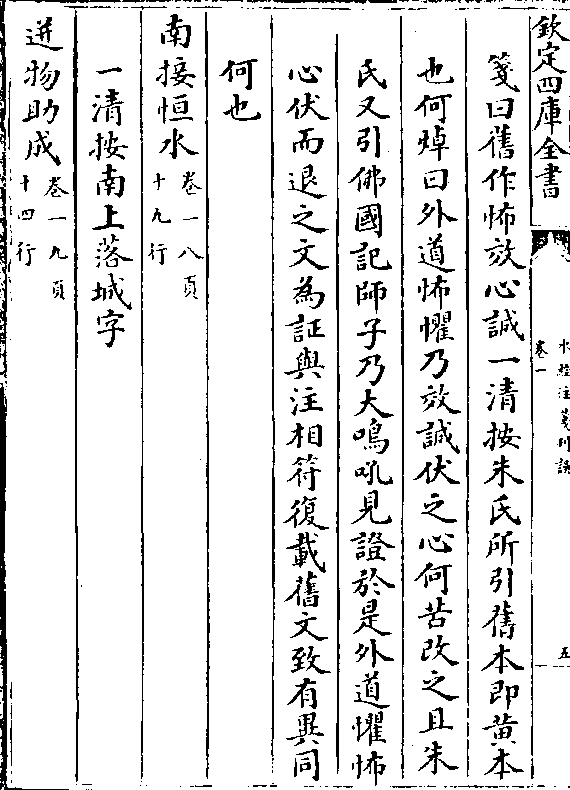 欽定四庫全書
水經注箋刋誤
卷一
五
箋曰舊作怖放心誠一清按朱氏所引舊本即黄本
也何焯曰外道怖懼乃效誠伏之心何苦改之且朱
氏又引佛國記師子乃大鳴吼見證於是外道懼怖
心伏而退之文為証與注相符復載舊文致有異同
何也
南接恒水卷一八頁十九行
一清按南上落城字
迸物助成卷一九頁十四行